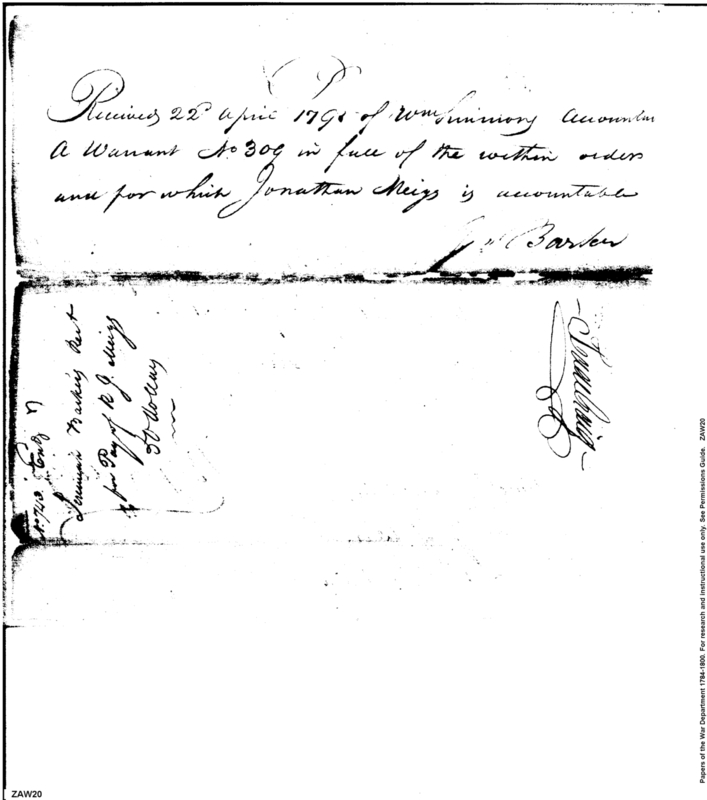 Received 22d April 179 of Wm Simmons Accountan
A Warrant No 309 in full of the within orders
and for which Jonathan Meigs is accountable
Barker
No 743
Jeremiah Barker's Rect
for Pay of R. J. Meigs
30 dollars
ZAW20
Papers of the War Department 1784-1800. For research and instructional use only. See Permissions Guide. ZAW20